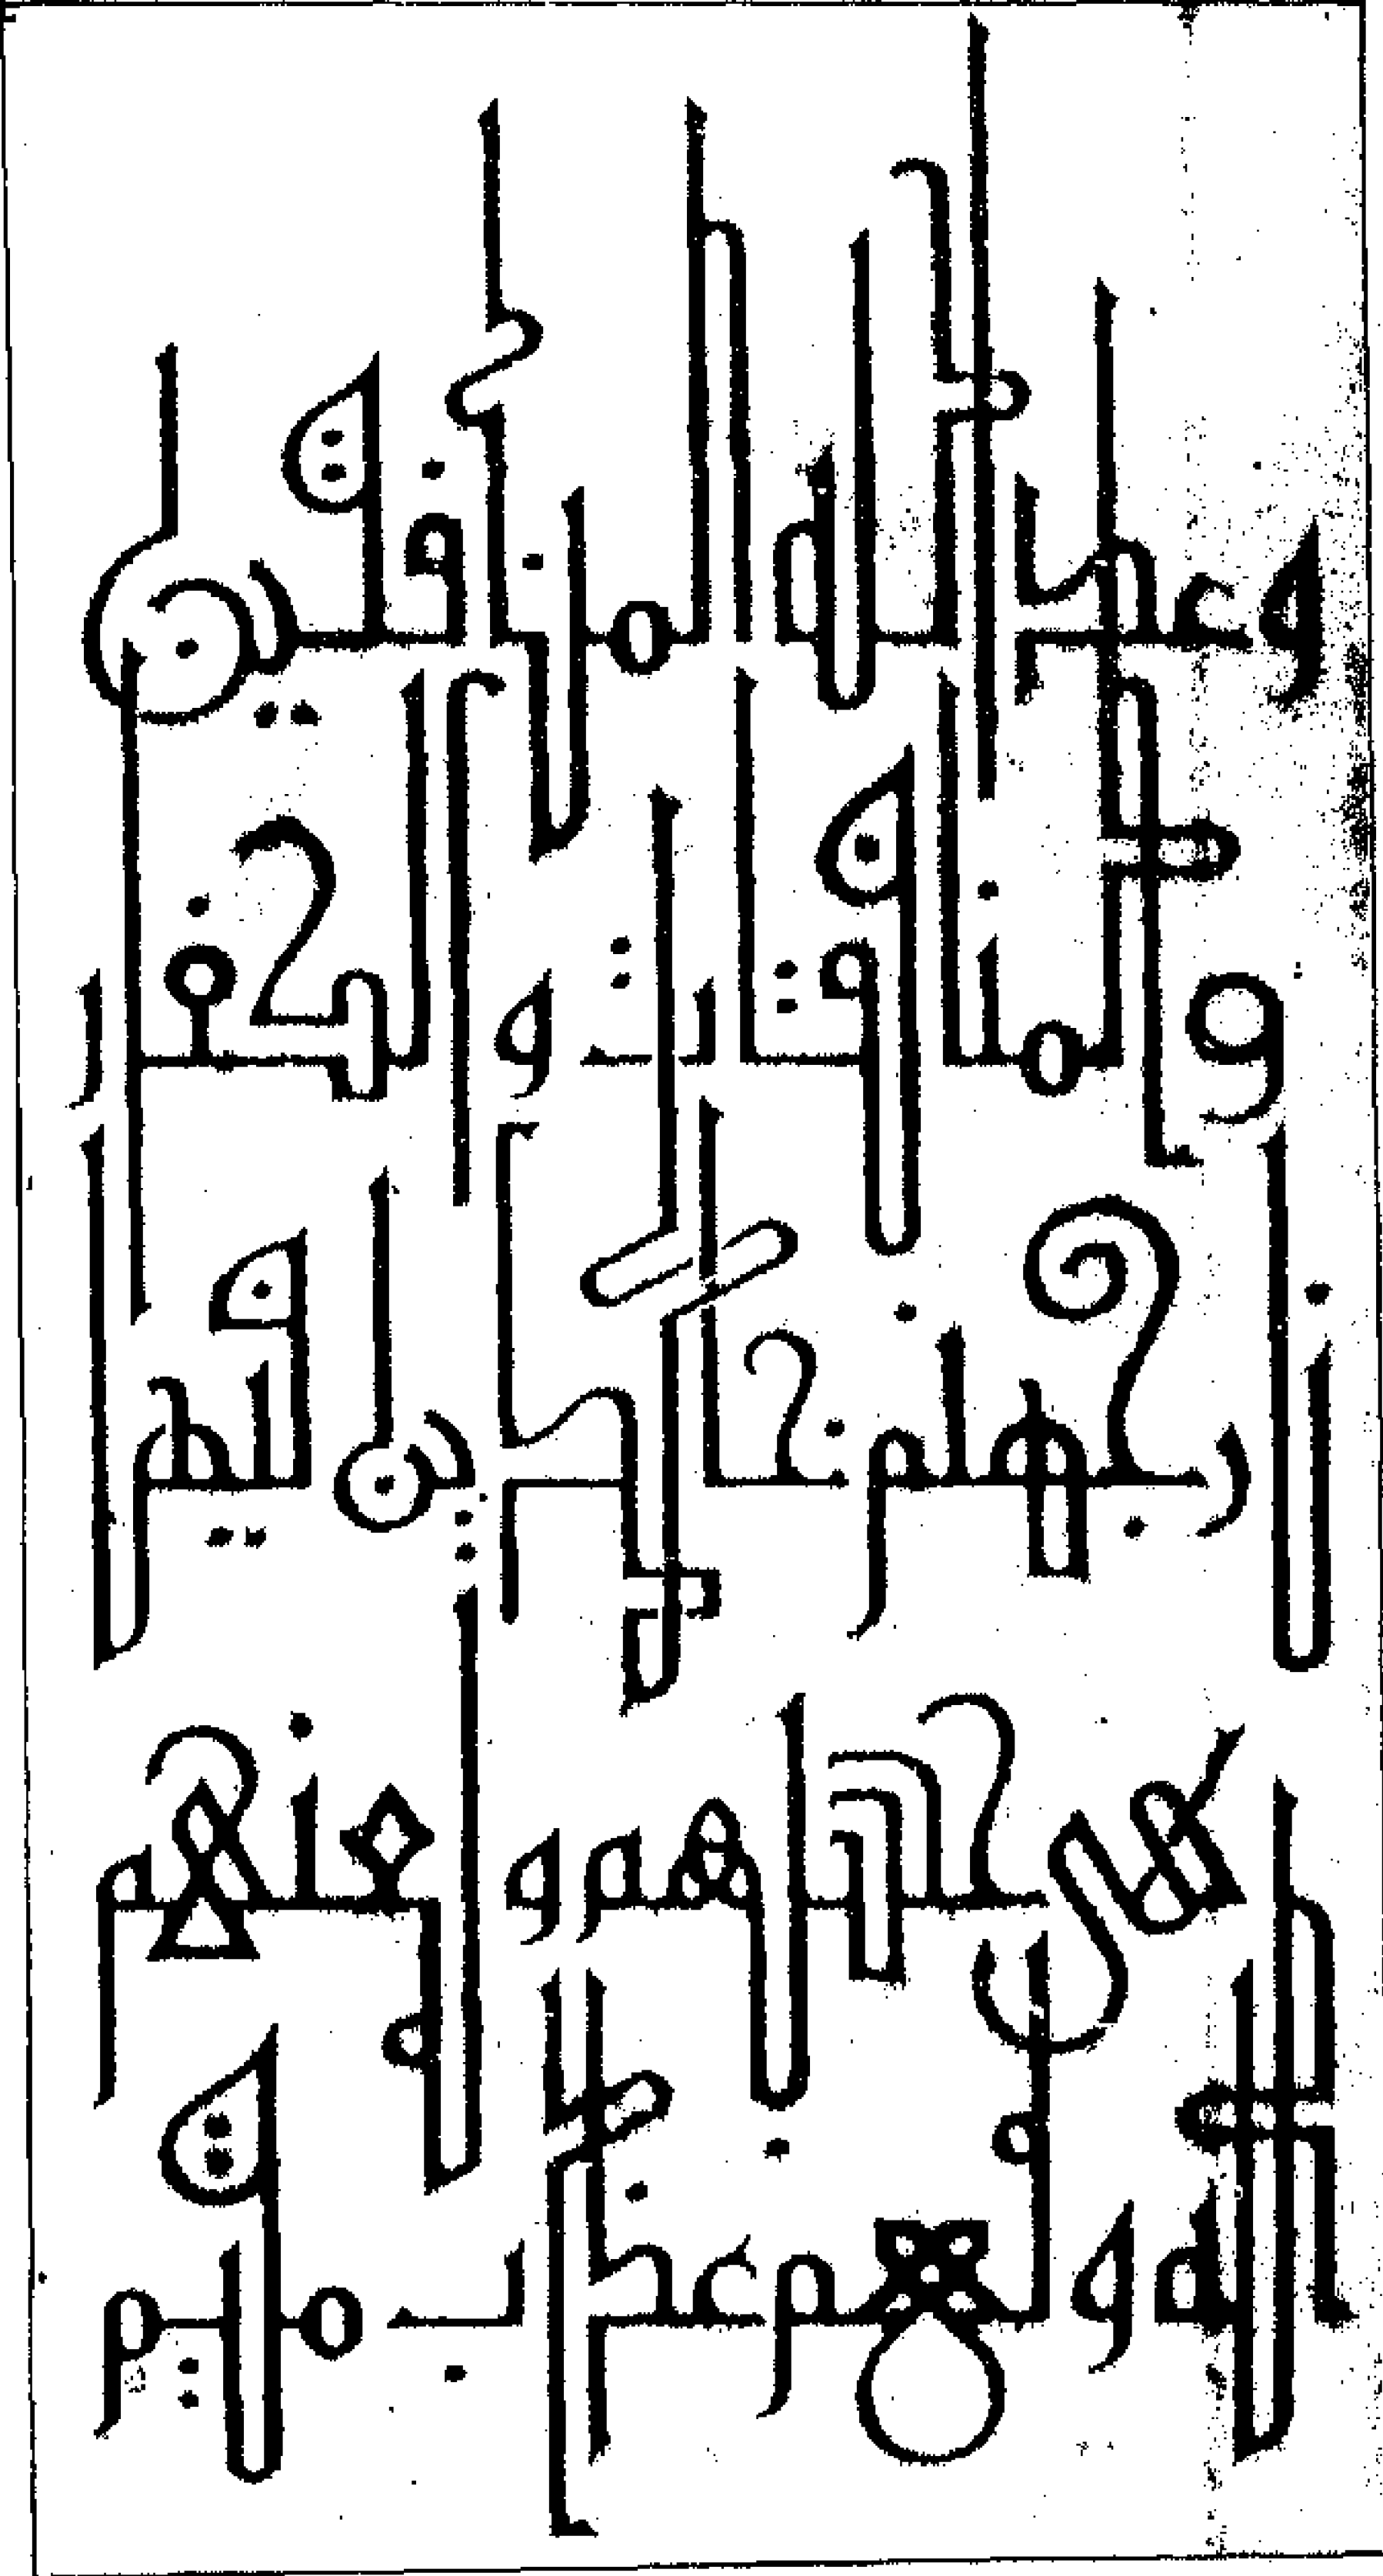 وعد الله المنفقين
والمنفقت والكفار
نار جهنم خلدين فيها
هي حسبهم ولعنهم
الله ولهم عذاب مقيم